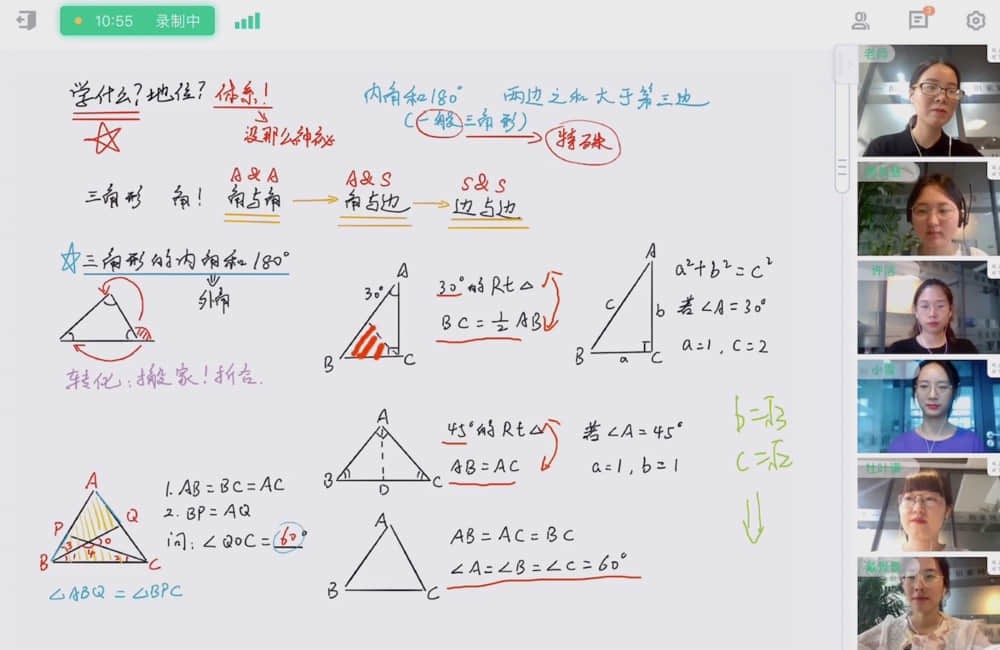 10:55 录制中
3
学什么?地位?体系!
没那么神秘
内角和180° 两边之和大于第三边
(一般三角形) 特殊
三角形 角!
A & A
角与角
A & S
角与边
S & S
边与边
三角形的内角和180°
外角
转化:搬家!折合.
A
30°
B
C
30°的Rt△
BC=½AB
A
c
b
B
a
C
a²+b²=c²
若∠A=30°
a=1, c=2
A
B
D
C
45°的Rt△
AB=AC
若∠A=45°
a=1, b=1
b=√3
c=√2
A
P
Q
O
3
4
2
B
C
1. AB=BC=AC
2. BP=AQ
问:∠QOC=60°
∠ABQ=∠BPC
A
B
C
AB=AC=BC
∠A=∠B=∠C=60°
老师
小雪